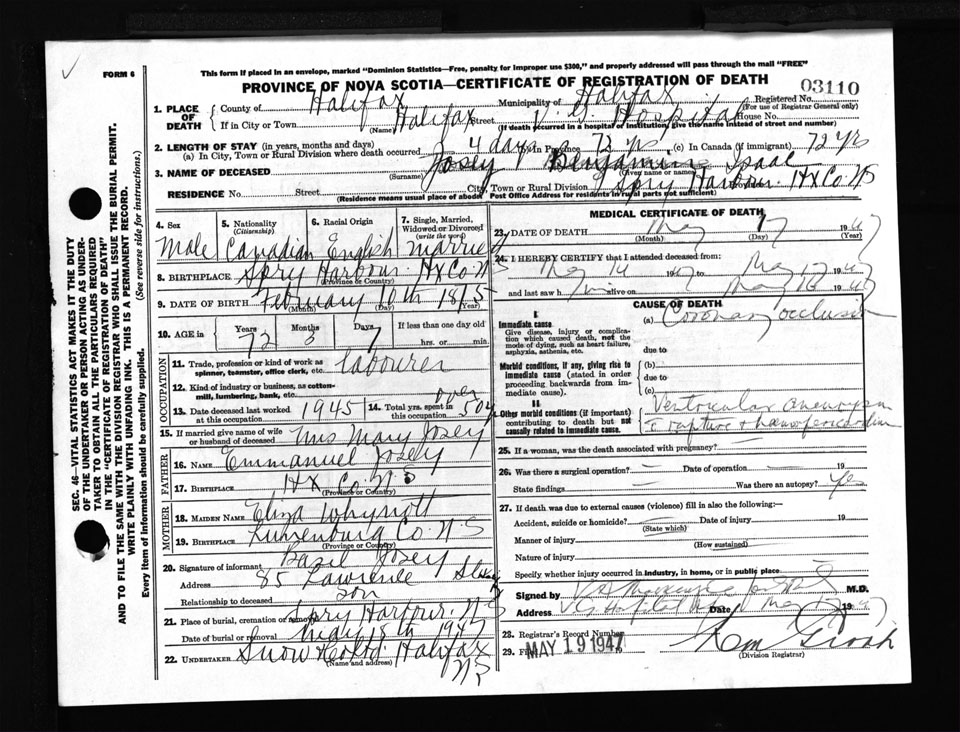 FORM 6
This form if placed in an envelope, marked "Dominion Statistics—Free, penalty for improper use $300," and properly addressed will pass through the mail "FREE"
PROVINCE OF NOVA SCOTIA—CERTIFICATE OF REGISTRATION OF DEATH
03110
SEC. 46—VITAL STATISTICS ACT MAKES IT THE DUTY
OF THE UNDERTAKER OR PERSON ACTING AS UNDER-
TAKER TO OBTAIN ALL THE PARTICULARS REQUIRED
IN THE "CERTIFICATE OF REGISTRATION OF DEATH"
AND TO FILE THE SAME WITH THE DIVISION REGISTRAR WHO SHALL ISSUE THE BURIAL PERMIT.
WRITE PLAINLY WITH UNFADING INK. THIS IS A PERMANENT RECORD.
Every item of information should be carefully supplied. (See reverse side for instructions.)
1. PLACE OF DEATH County of Halifax Municipality of Halifax Registered No.
(For use of Registrar General only)
If in City or Town Halifax Street V. G. Hospital House No.
(Name) (If death occurred in a hospital or institution, give the name instead of street and number)
2. LENGTH OF STAY (in years, months and days)
(a) In City, Town or Rural Division where death occurred 4 days In Province 72 yrs (c) In Canada (if immigrant) 72 yrs
3. NAME OF DECEASED Josey Benjamin Isaac
(Surname) (Given name or names)
RESIDENCE No. Street City, Town or Rural Division Spry Harbour Hx Co NS
(Residence means usual place of abode Post Office Address for residents in rural parts not sufficient)
4. Sex Male
5. Nationality (Citizenship) Canadian
6. Racial Origin English
7. Single, Married, Widowed or Divorced (write the word) Married
8. BIRTHPLACE Spry Harbour Hx Co NS
(Province or Country)
9. DATE OF BIRTH February 10th 1875
(Month) (Day) (Year)
10. AGE in Years 72 Months 3 Days 7 If less than one day old hrs. or min.
OCCUPATION
11. Trade, profession or kind of work as spinner, teamster, office clerk, etc. labourer
12. Kind of industry or business, as cotton-mill, lumbering, bank, etc.
13. Date deceased last worked at this occupation 1945 14. Total yrs. spent in this occupation over 50 y
15. If married give name of wife or husband of deceased Mrs Mary Josey
FATHER
16. NAME Emmanuel Josey
17. BIRTHPLACE Hx Co. N S
(Province or Country)
MOTHER
18. MAIDEN NAME Eliza Whynott
19. BIRTHPLACE Lunenburg Co N S
(Province or Country)
20. Signature of informant Basil Josey
Address 85 Lawrence St
Relationship to deceased son
21. Place of burial, cremation or removal Spry Harbour N S
Date of burial or removal May 18th 1947
22. UNDERTAKER Snow & Co Ltd. Halifax NS
(Name and address)
MEDICAL CERTIFICATE OF DEATH
23. DATE OF DEATH May 17 1947
(Month) (Day) (Year)
24. I HEREBY CERTIFY that I attended deceased from:
May 14 1947 to May 17 1947
and last saw him alive on May 16 1947
CAUSE OF DEATH
I.
Immediate cause (a) Coronary occlusion
Give disease, injury or complication which caused death, not the mode of dying, such as heart failure, asphyxia, asthenia, etc.
due to
Morbid conditions, if any, giving rise to immediate cause (stated in order proceeding backwards from immediate cause).
(b)
due to
(c)
II
Other morbid conditions (if important) contributing to death but not causally related to immediate cause.
Ventricular aneurysm
c rupture & haemopericardium
25. If a woman, was the death associated with pregnancy?
26. Was there a surgical operation? Date of operation 19
State findings Was there an autopsy? Yes
27. If death was due to external causes (violence) fill in also the following:—
Accident, suicide or homicide? Date of injury 19
(State which)
Manner of injury
(How sustained)
Nature of injury
Specify whether injury occurred in industry, in home, or in public place
Signed by M.D.
Address V G Hospital Date May 17 1947
28. Registrar's Record Number
29. MAY 19 1947
(Division Registrar)